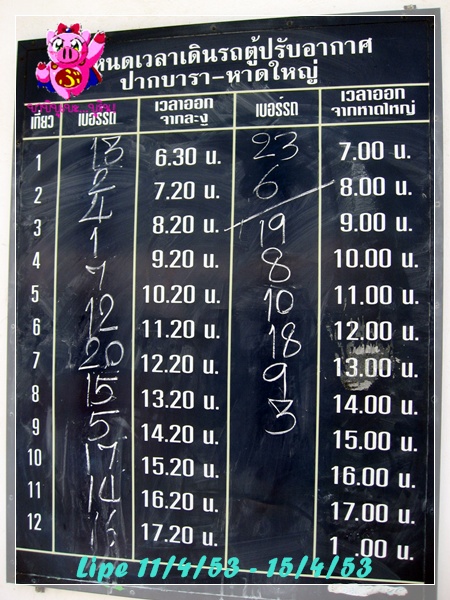 หนดเวลาเดินรถตู้ปรับอากาศ
ปากบารา-หาดใหญ่
เที่ยว เบอร์รถ เวลาออกจากละงู เบอร์รถ เวลาออกจากหาดใหญ่
1 13 6.30 น. 23 7.00 น.
2 2 7.20 น. 6 8.00 น.
3 4 8.20 น. 19 9.00 น.
4 1 9.20 น. 8 10.00 น.
5 7 10.20 น. 10 11.00 น.
6 12 11.20 น. 18 12.00 น.
7 20 12.20 น. 9 13.00 น.
8 15 13.20 น. 3 14.00 น.
9 5 14.20 น. 15.00 น.
10 17 15.20 น. 16.00 น.
11 14 16.20 น. 17.00 น.
12 17.20 น. 1 .00 น.
Lipe 11/4/53 - 15/4/53